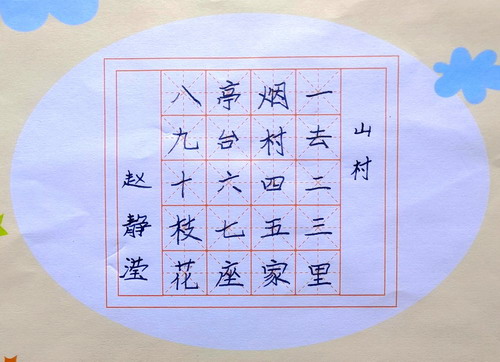 山村
一去二三里
烟村四五家
亭台六七座
八九十枝花
赵静滢